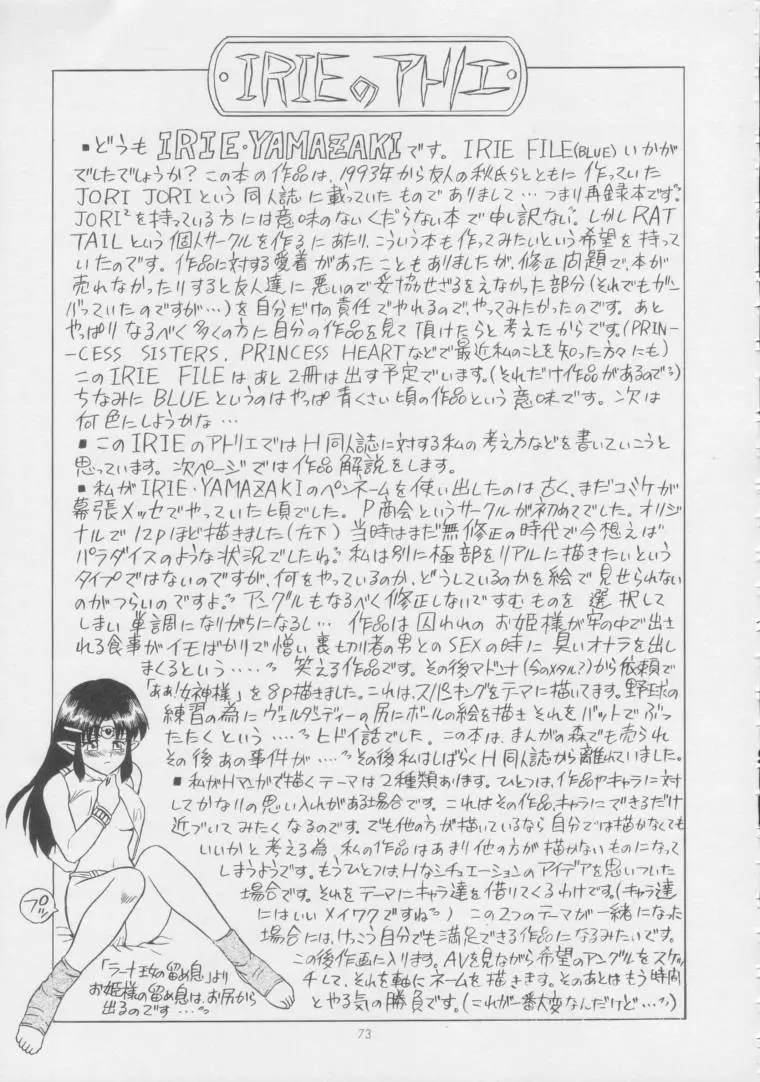 IRIEのアトリエ
■どうもIRIE・YAMAZAKIです。IRIE FILE(BLUE)いかが
でしたでしょうか?この本の作品は、1993年から友人の秋氏らとともに作っていた
JORI JORIという同人誌に載っていたものでありまして…つまり再録本です。
JORI²を持っている方には意味のないくだらない本で申し訳ない。しかしRAT
TAILという個人サークルを作るにあたり、こういう本も作ってみたいという希望を持って
いたのです。作品に対する愛着があったこともありましたが、修正問題で、本が
売れなかったりすると友人達に悪いので妥協せざるをえなかった部分(それでもガン
バっていたのですが…)を自分だけの責任でやれるので、やってみたかったのです。あと
やっぱりなるべく多くの方に自分の作品を見て頂けたらと考えたからです。(PRIN-
-CESS SISTERS, PRINCESS HEARTなどで最近私のことを知った方々にも)
このIRIE FILEはあと2冊は出す予定でいます。(それだけ作品があるので)
ちなみにBLUEというのはやっぱ青くさい頃の作品という意味です。次は
何色にしようかな…
■このIRIEのアトリエではH同人誌に対する私の考え方などを書いていこうと
思っています。次ページでは作品解説をします。
■私がIRIE・YAMAZAKIのペンネームを使い出したのは古く、まだコミケが
幕張メッセでやっていた頃でした。P商会というサークルが初めてでした。オリジ
ナルで12pほど描きました(左下)当時はまだ無修正の時代で今想えば
パラダイスのような状況でしたね。私は別に極部をリアルに描きたいという
タイプではないのですが、何をやっているのか、どうしているのかを絵で見せられない
のがつらいのですよ。アングルもなるべく修正しないですむものを選択して
しまい単調になりがちになるし…作品は囚われのお姫様が牢の中で出さ
れる食事がイモばかりで憎い裏切り者の男とのSEXの時に臭いオナラを出し
まくるという……笑える作品です。その後マドンナ(今のメタル?)から依頼で
「ああ!女神様」を8p描きました。これは、スパンキングをテーマに描いてます。野球の
練習の為にヴェルダンディーの尻にボールの絵を描きそれをバットでぶっ
たたくという……ヒドイ話でした。この本は、まんがの森でも売られ
その後あの事件が……その後私はしばらくH同人誌から離れていました。
■私がHマンガで描くテーマは2種類あります。ひとつは、作品やキャラに対
してかなりの思い入れがある場合です。これはその作品、キャラにできるだけ
近づいてみたくなるのです。でも他の方が描いているなら自分では描かなくても
いいかと考える為、私の作品はあまり他の方が描かないものになって
しまうようです。もうひとつは、Hなシチュエーションのアイデアを思いついた
場合です。それをテーマにキャラ達を借りてくるわけです。(キャラ達
にはいいメイワクですね)この2つのテーマが一緒になった
場合には、けっこう自分でも満足できる作品になるみたいです。
この後作画に入ります。AVを見ながら希望のアングルをスケッ
チして、それを軸にネームを描きます。そのあとはもう時間
とやる気の勝負です。(これが一番大変なんだけど…)
プッ
「ラーナ王女の留め息」より
お姫様の留め息は、お尻から
出るのです…
73